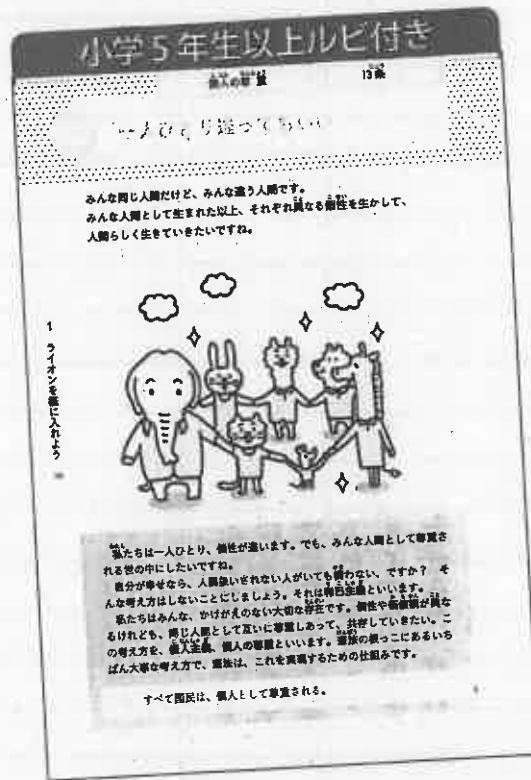 小学5年生以上ルビ付き
個人の尊重 13条
一人ひとり違ってもいい
みんな同じ人間だけど、みんな違う人間です。
みんな人間として生まれた以上、それぞれ異なる個性を生かして、
人間らしく生きていきたいですね。
1 ライオンを檻に入れよう
私たちは一人ひとり、個性が違います。でも、みんな人間として尊重さ
れる世の中にしたいですね。
自分が幸せなら、人間扱いされない人がいても構わない、ですか? そ
んな考え方はしないことにしましょう。それは利己主義といいます。
私たちはみんな、かけがえのない大切な存在です。個性や価値観が異な
るけれども、同じ人間として互いに尊重しあって、共存していきたい。こ
の考え方を、個人主義、個人の尊重といいます。憲法の根っこにあるいち
ばん大事な考え方で、憲法は、これを実現するための仕組みです。
すべて国民は、個人として尊重される。